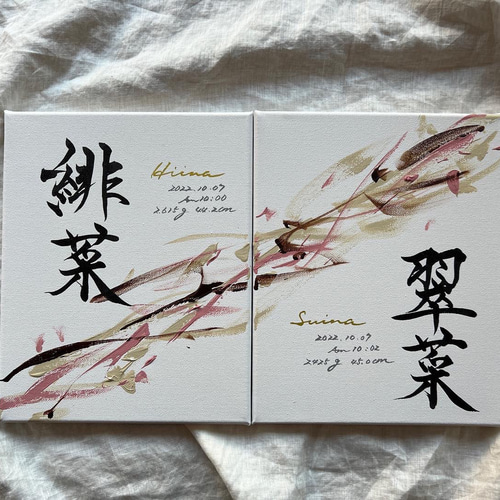 緋菜
Hiina
2022.10.07
Am 10:00
2615g 44.2cm
翠菜
Suina
2022.10.07
Am 10:02
2425g 45.0cm